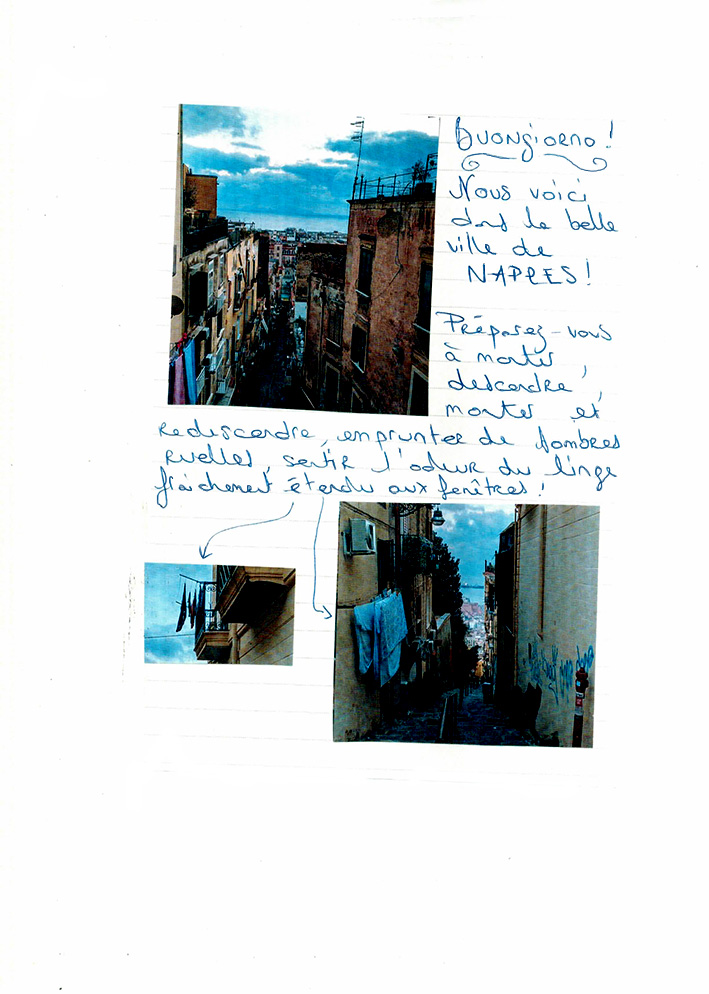 Buongiorno!
Nous voici
dans la belle
ville de
NAPLES!
Préparez-vous
à monter,
descendre,
monter et
redescendre, emprunter de sombres
ruelles, sentir l'odeur du linge
fraîchement étendu aux fenêtres!